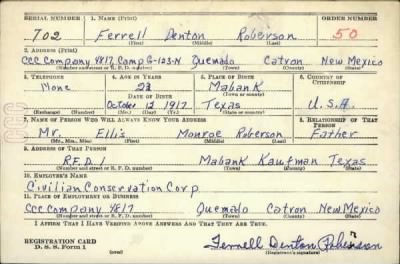 SERIAL NUMBER 1. NAME (Print) ORDER NUMBER
702 Ferrell Denton Roberson 50
(First) (Middle) (Last)
2. ADDRESS (Print)
CCC Company 4817 Camp G-123-N Quemado Catron New Mexico
(Number and street or R. F. D. number) (Town) (County) (State)
3. TELEPHONE 4. AGE IN YEARS 5. PLACE OF BIRTH 6. COUNTRY OF CITIZENSHIP
None 23 Mabank
DATE OF BIRTH (Town or county)
October 12 1917 Texas U.S.A.
(Exchange) (Number) (Mo.) (Day) (Yr.) (State or country)
7. NAME OF PERSON WHO WILL ALWAYS KNOW YOUR ADDRESS 8. RELATIONSHIP OF THAT PERSON
Mr. Ellis Monroe Roberson Father
(Mr., Mrs., Miss) (First) (Middle) (Last)
9. ADDRESS OF THAT PERSON
R.F.D. 1 Mabank Kaufman Texas
(Number and street or R. F. D. number) (Town) (County) (State)
10. EMPLOYER'S NAME
Civilian Conservation Corp
11. PLACE OF EMPLOYMENT OR BUSINESS
CCC Company 4817 Quemado Catron New Mexico
(Number and street or R. F. D. number) (Town) (County) (State)
I AFFIRM THAT I HAVE VERIFIED ABOVE ANSWERS AND THAT THEY ARE TRUE.
REGISTRATION CARD
D. S. S. Form 1 (over) Ferrell Denton Roberson
(Registrant's signature)